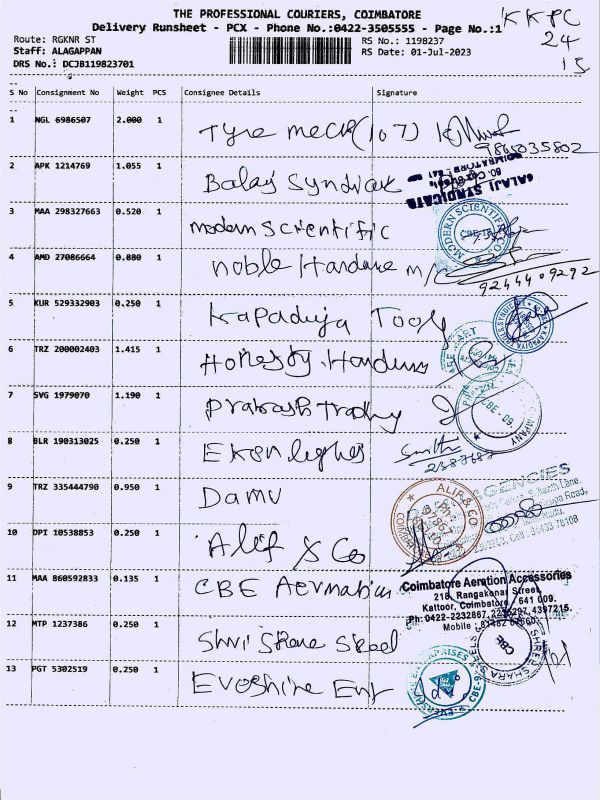 THE PROFESSIONAL COURIERS, COIMBATORE
KKPC
Delivery Runsheet - PCX - Phone No.:0422-3505555 - Page No.:1
24
15
Route: RGKNR ST
RS No.: 1198237
Staff: ALAGAPPAN
RS Date: 01-Jul-2023
DRS No.: DCJB119823701
S No Consignment No Weight PCS Consignee Details Signature
1 NGL 6986507 2.000 1 Tyre mech (107)
9865035802
2 APK 1214769 1.055 1 Balaji Syndicate
BALAJI SYNDICATE
3 MAA 298327663 0.520 1 modern scientific
MODERN SCIENTIFIC CO.
4 AMD 27086664 0.880 1 noble Hardware m/c
9244409292
5 KUR 529332903 0.250 1 Kapadiya Tools
6 TRZ 200002403 1.415 1 Honesty Hardware
7 SVG 1979070 1.190 1 Prakash trading
CBE - 09.
8 BLR 190313025 0.250 1 Ekon lights
9 TRZ 335444790 0.950 1 Damu
AGENCIES
10 DPI 10538853 0.250 1 Alif & Co
ALIF & CO
11 MAA 860592833 0.135 1 CBE Aermation
Coimbatore Aeration Accessories
218, Rangakonar Street,
Kattoor, Coimbatore - 641 009.
12 MTP 1237386 0.250 1 Shri Shara Steel
CBE
13 PGT 5302519 0.250 1 Evershine Ent